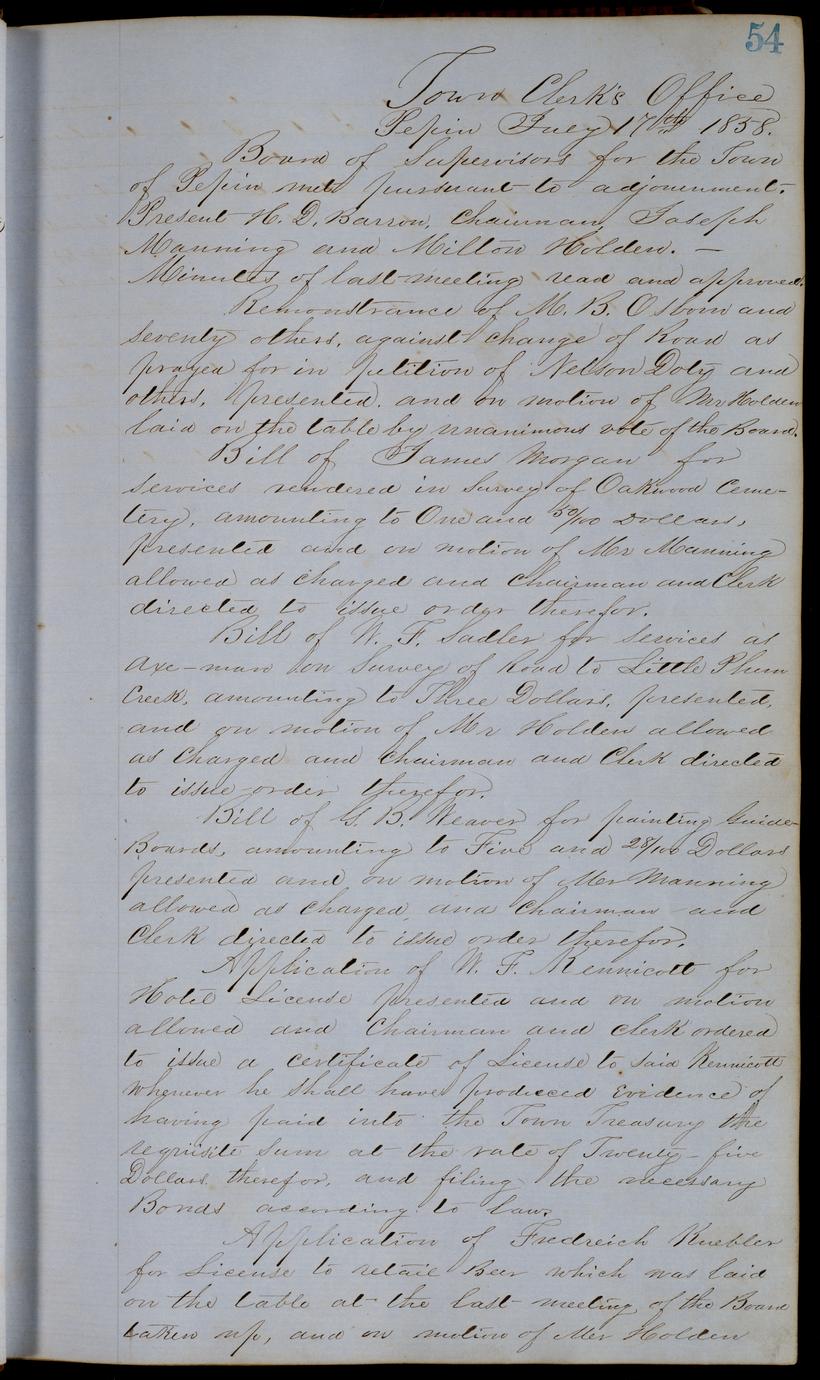 54
Town Clerk's Office
Pepin July 17th 1858.
Board of Supervisors for the Town
of Pepin met pursuant to adjournment.
Present H. D. Barron, Chairman, Joseph
Manning and Milton Holden. —
Minutes of last meeting read and approved.
Remonstrance of M. B. Osborn and
seventy others, against change of Road as
prayed for in petition of Nelson Doty and
others, presented, and on motion of Mr Holden
laid on the table by unanimous vote of the Board.
Bill of James Morgan for
services rendered in Survey of Oakwood Ceme-
tery, amounting to One and 50/100 Dollars,
presented and on motion of Mr Manning
allowed as charged and Chairman and Clerk
directed to issue order therefor.
Bill of W. F. Sadler for services as
axe-man on Survey of Road to Little Plum
Creek, amounting to Three Dollars, presented,
and on motion of Mr Holden allowed
as charged and chairman and Clerk directed
to issue order therefor.
Bill of G. B. Weaver for painting Guide-
Boards, amounting to Five and 28/100 Dollars
presented and on motion of Mr Manning
allowed as charged and Chairman and
Clerk directed to issue order therefor.
Application of W. F. Kennicott for
Hotel License presented and on motion
allowed and Chairman and clerk ordered
to issue a certificate of License to said Kennicott
whenever he shall have produced Evidence of
having paid into the Town Treasury the
requisite sum at the rate of Twenty-five
Dollars therefor, and filing the necessary
Bonds according to law.
Application of Fredreich Kuebler
for License to retail Beer which was laid
on the table at the last meeting of the Board
taken up, and on motion of Mr Holden